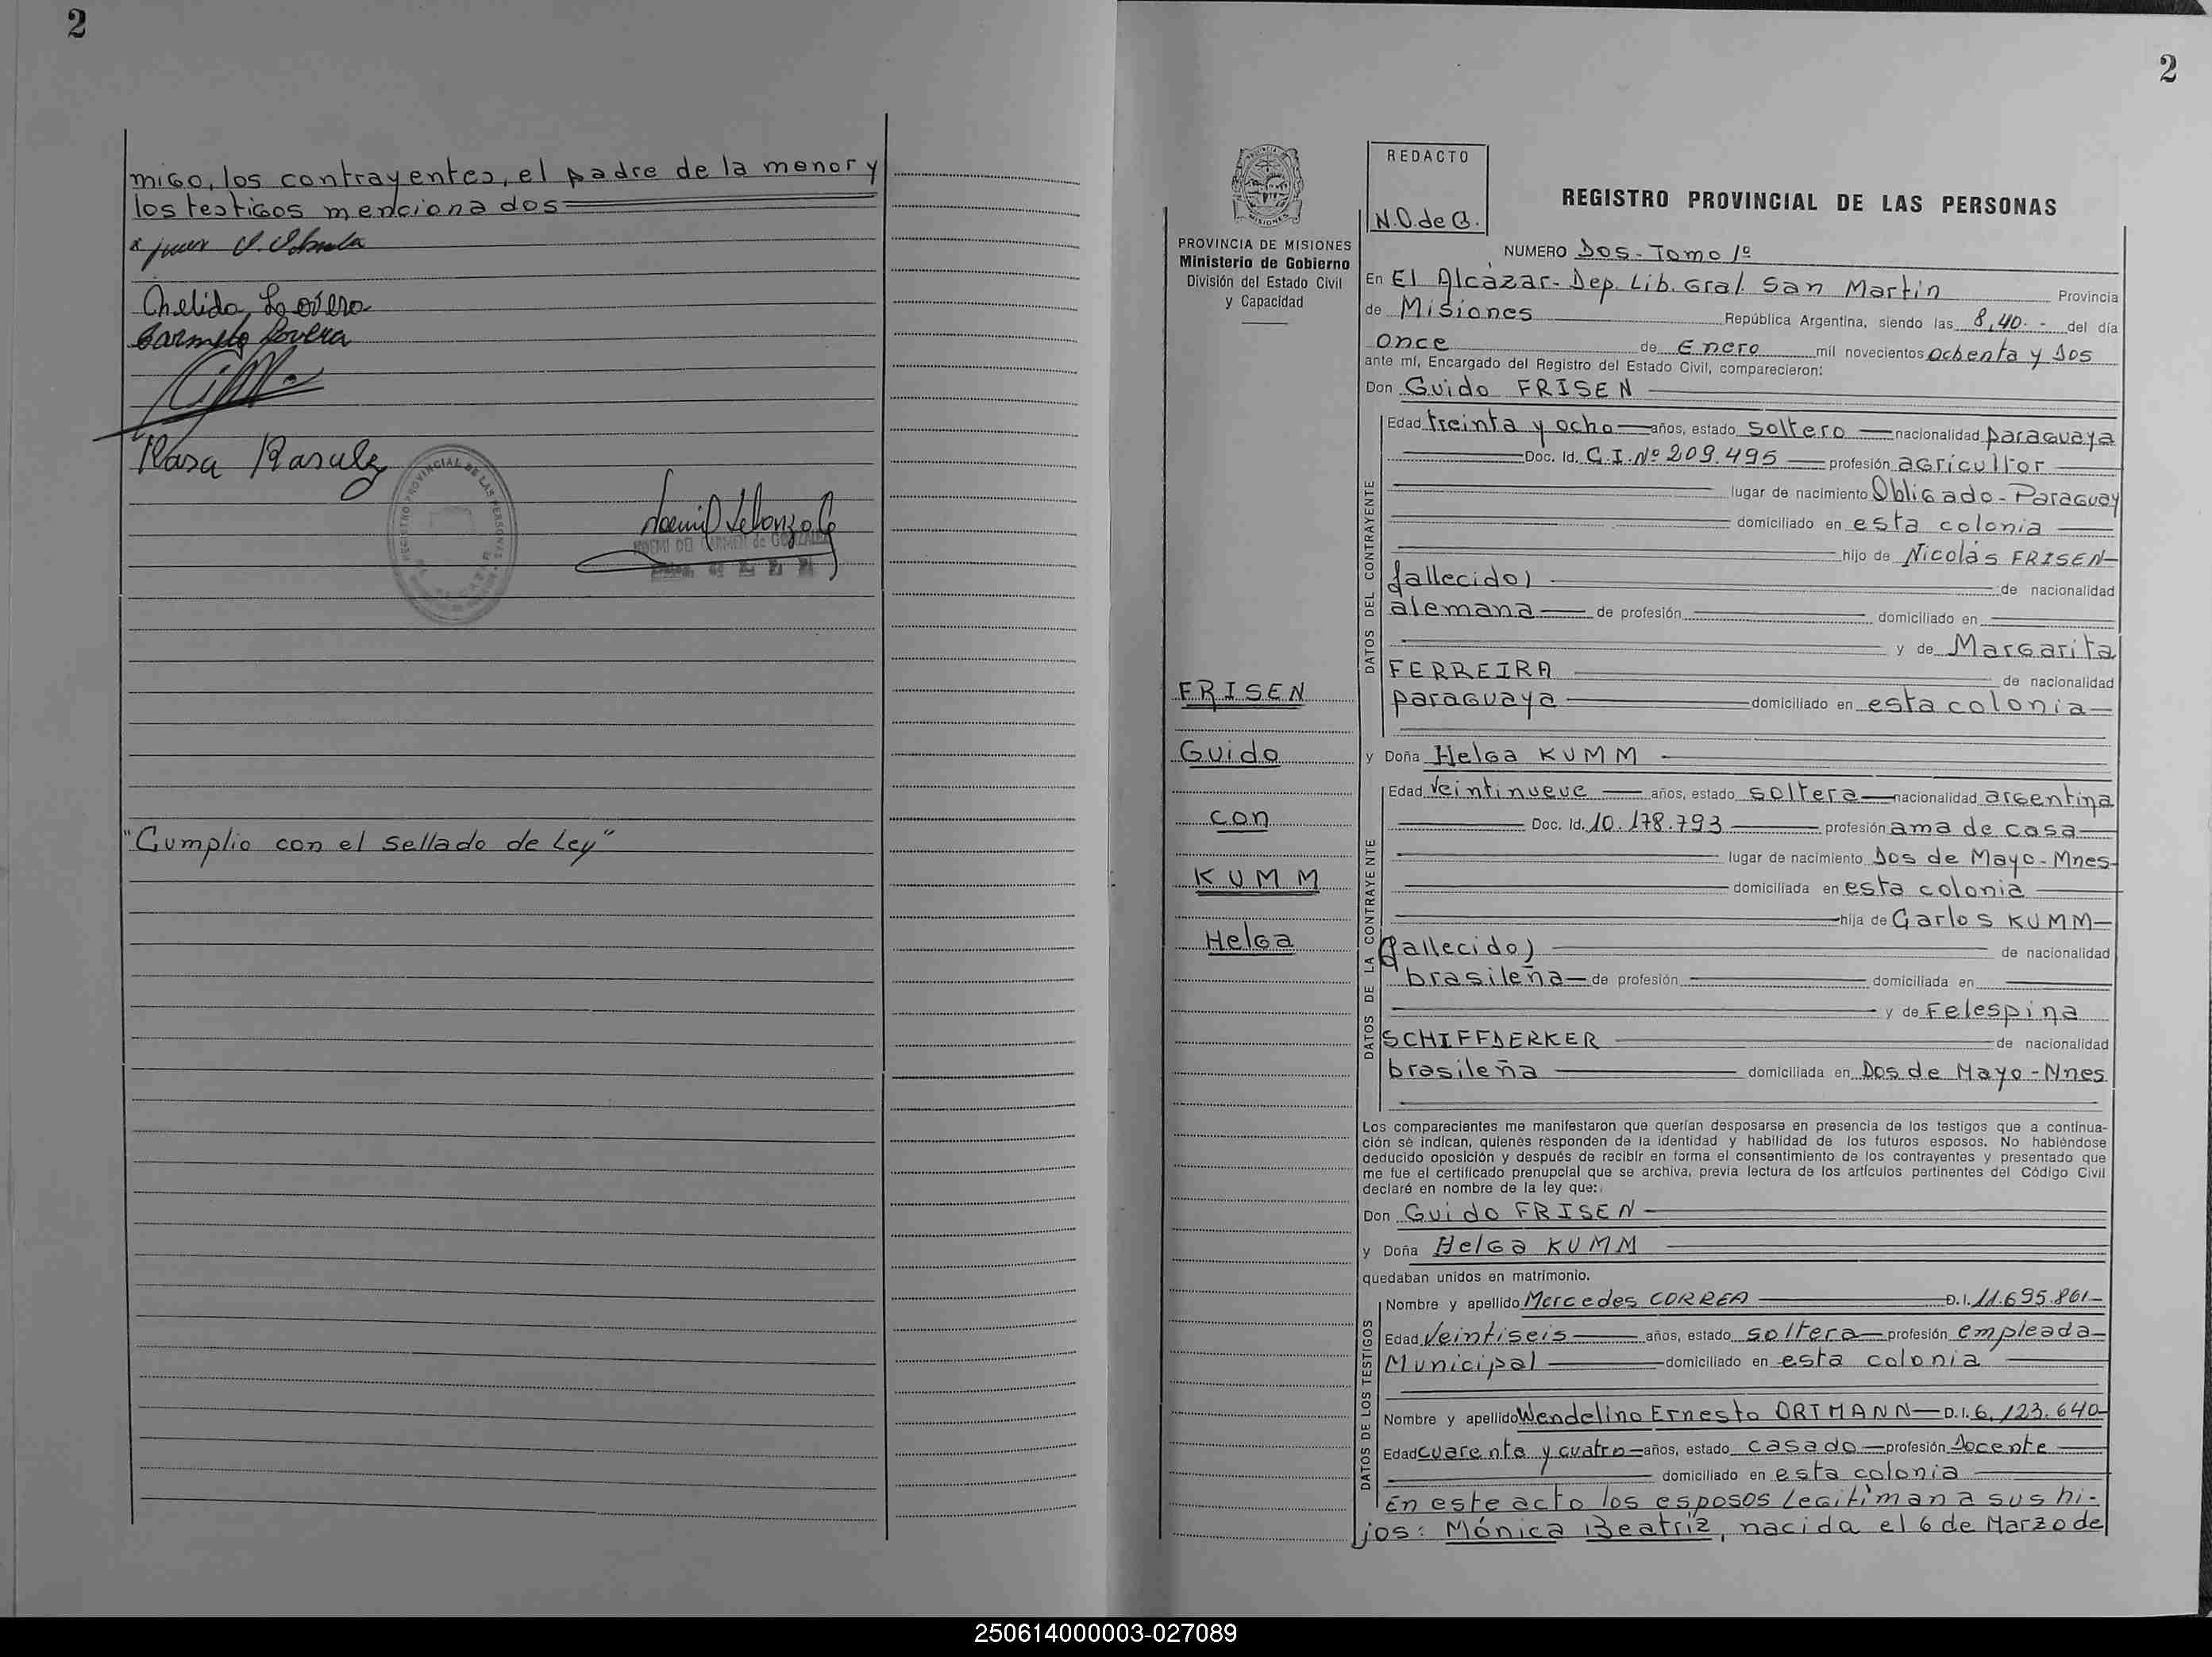 2
migo, los contrayentes, el padre de la menor y
los testigos mencionados
Chelida Lovera
Carmelo Lovera
Rasa
REGISTRO PROVINCIAL DE LAS PERSONAS
NOEMI DEL CARMEN de GONZALEZ
"Cumplio con el sellado de Ley"
2
PROVINCIA DE MISIONES
Ministerio de Gobierno
División del Estado Civil
y Capacidad
FRISEN
Guido
con
KUMM
Helga
REDACTO
N.O.de G.
REGISTRO PROVINCIAL DE LAS PERSONAS
NUMERO Dos - Tomo 1º
En El Alcázar - Dep. Lib. Gral. San Martin Provincia
de Misiones República Argentina, siendo las 8,40.- del día
once de Enero mil novecientos ochenta y Dos
ante mí, Encargado del Registro del Estado Civil, comparecieron:
Don Guido FRISEN
DATOS DEL CONTRAYENTE
Edad treinta y ocho años, estado soltero nacionalidad paraguaya
Doc. Id. C.I. Nº 209.495 profesión agricultor
lugar de nacimiento Obligado - Paraguay
domiciliado en esta colonia
hijo de Nicolás FRISEN
fallecido) de nacionalidad
alemana de profesión domiciliado en
y de Margarita
FERREIRA de nacionalidad
paraguaya domiciliado en esta colonia
y Doña Helga KUMM
DATOS DE LA CONTRAYENTE
Edad veintinueve años, estado soltera nacionalidad argentina
Doc. Id. 10.178.793 profesión ama de casa
lugar de nacimiento Dos de Mayo - Mnes
domiciliada en esta colonia
hija de Carlos KUMM
(fallecido) de nacionalidad
brasileña de profesión domiciliada en
y de Felespina
SCHIFFDERKER de nacionalidad
brasileña domiciliada en Dos de Mayo - Mnes
Los comparecientes me manifestaron que querían desposarse en presencia de los testigos que a continua-
ción se indican, quienes responden de la identidad y habilidad de los futuros esposos. No habiéndose
deducido oposición y después de recibir en forma el consentimiento de los contrayentes y presentado que
me fue el certificado prenupcial que se archiva, previa lectura de los artículos pertinentes del Código Civil
declaré en nombre de la ley que:
Don Guido FRISEN
y Doña Helga KUMM
quedaban unidos en matrimonio.
DATOS DE LOS TESTIGOS
Nombre y apellido Mercedes CORREA D.I. 11.695.861
Edad veintiseis años, estado soltera profesión empleada
Municipal domiciliado en esta colonia
Nombre y apellido Wendelino Ernesto ORTMANN D.I. 6.123.640
Edad cuarenta y cuatro años, estado casado profesión Docente
domiciliado en esta colonia
En este acto los esposos Legitiman a sus hi-
jos: Mónica Beatriz, nacida el 6 de Marzo de
250614000003-027089